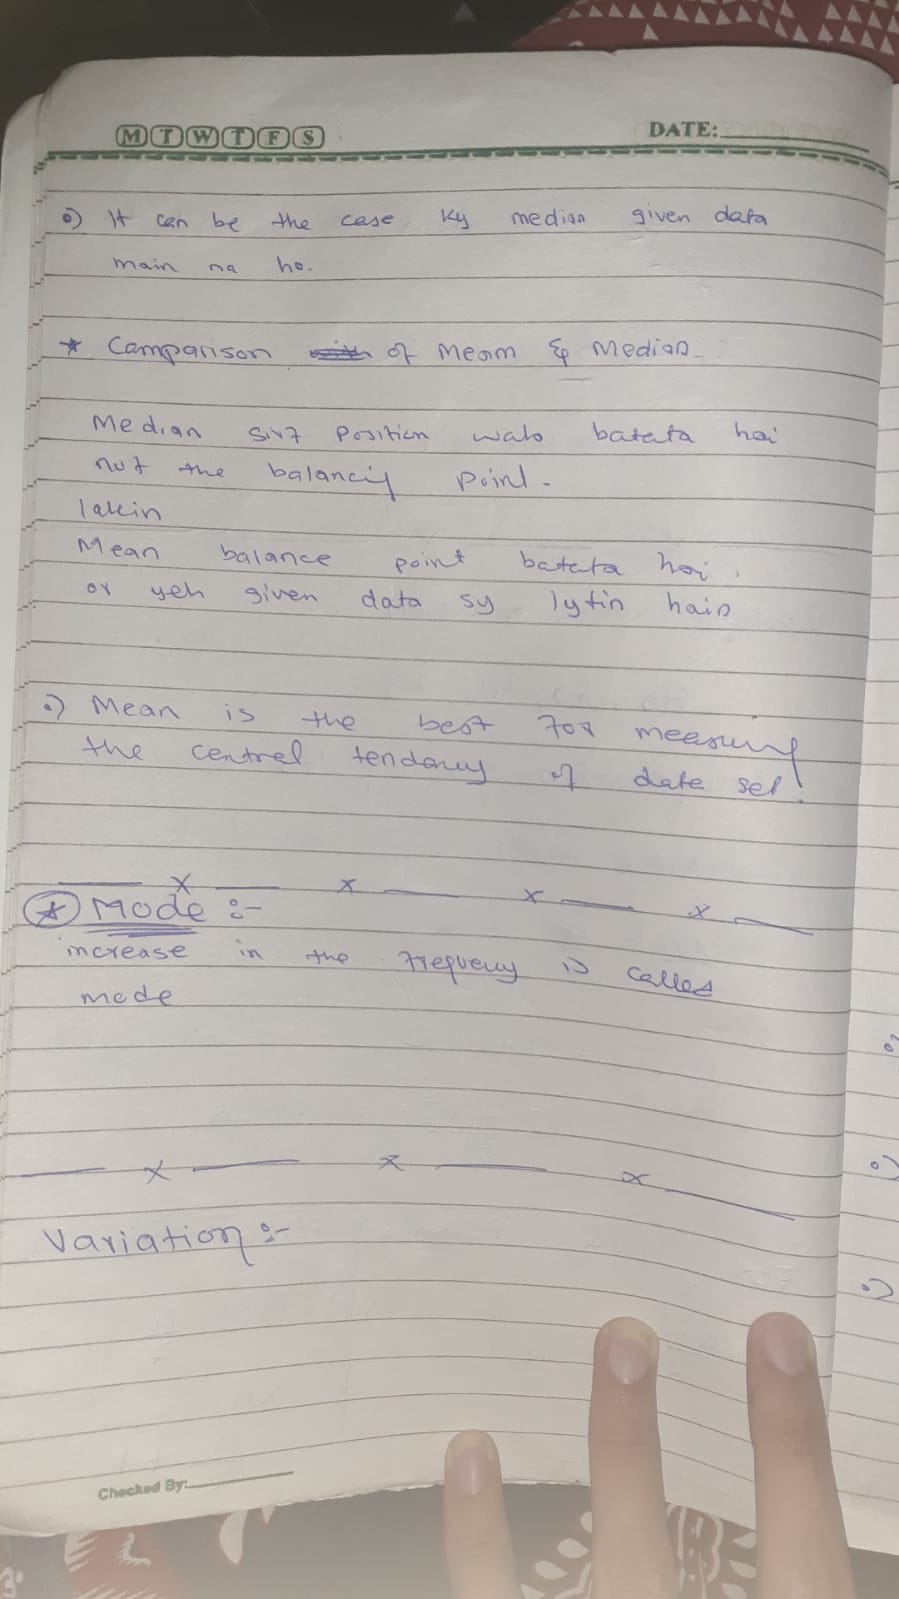 M T W T F S DATE:
o) It can be the case ky median given data
main na ho.
* Camparison of Mean & Median.
Median sirf Position walo batata hai
not the balancing point.
lakin
Mean balance point batata hai.
or yeh given data sy lytin hain
o) Mean is the best for measuring
the central tendancy of date set.
x x x x
* Mode :-
increase in the frequency is called
mode
x x x
Variation :-
Checked By: